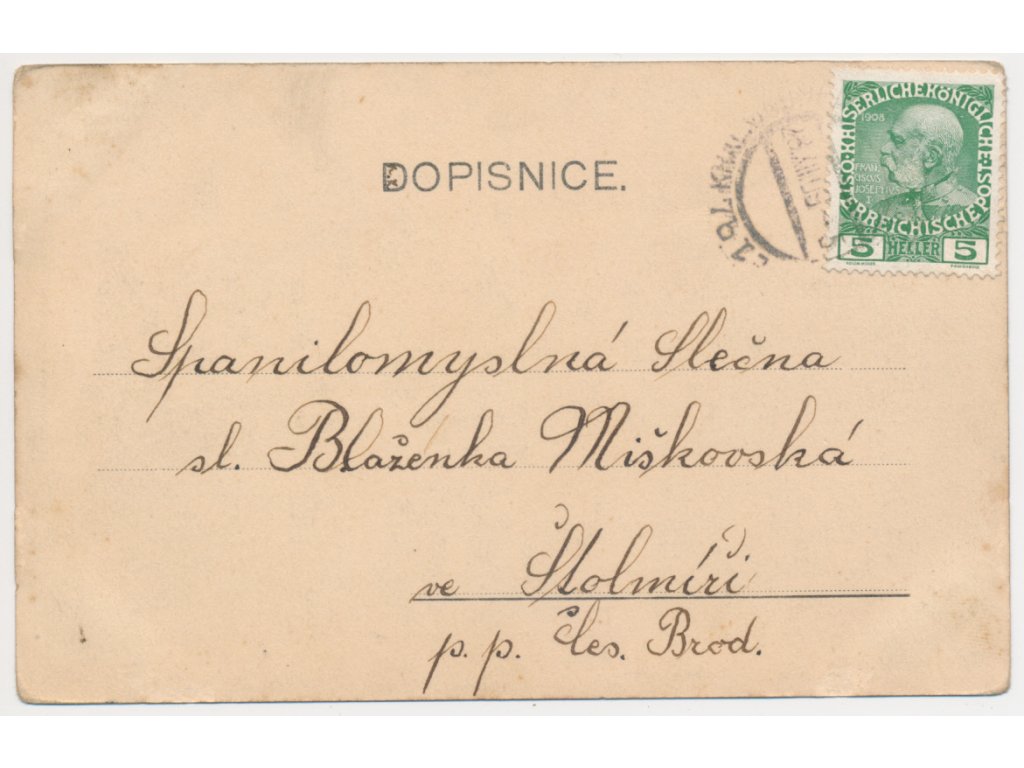 DOPISNICE.
KAISERLICHEKÖNIGLICHE
ÖSTERREICHISCHE POST
1908
FRAN
CISCUS
JOSEPHUS
5 HELLER 5
Spanilomyslná Slečna
sl. Blaženka Miškovská
ve Štolmíři
p. p. Čes. Brod.